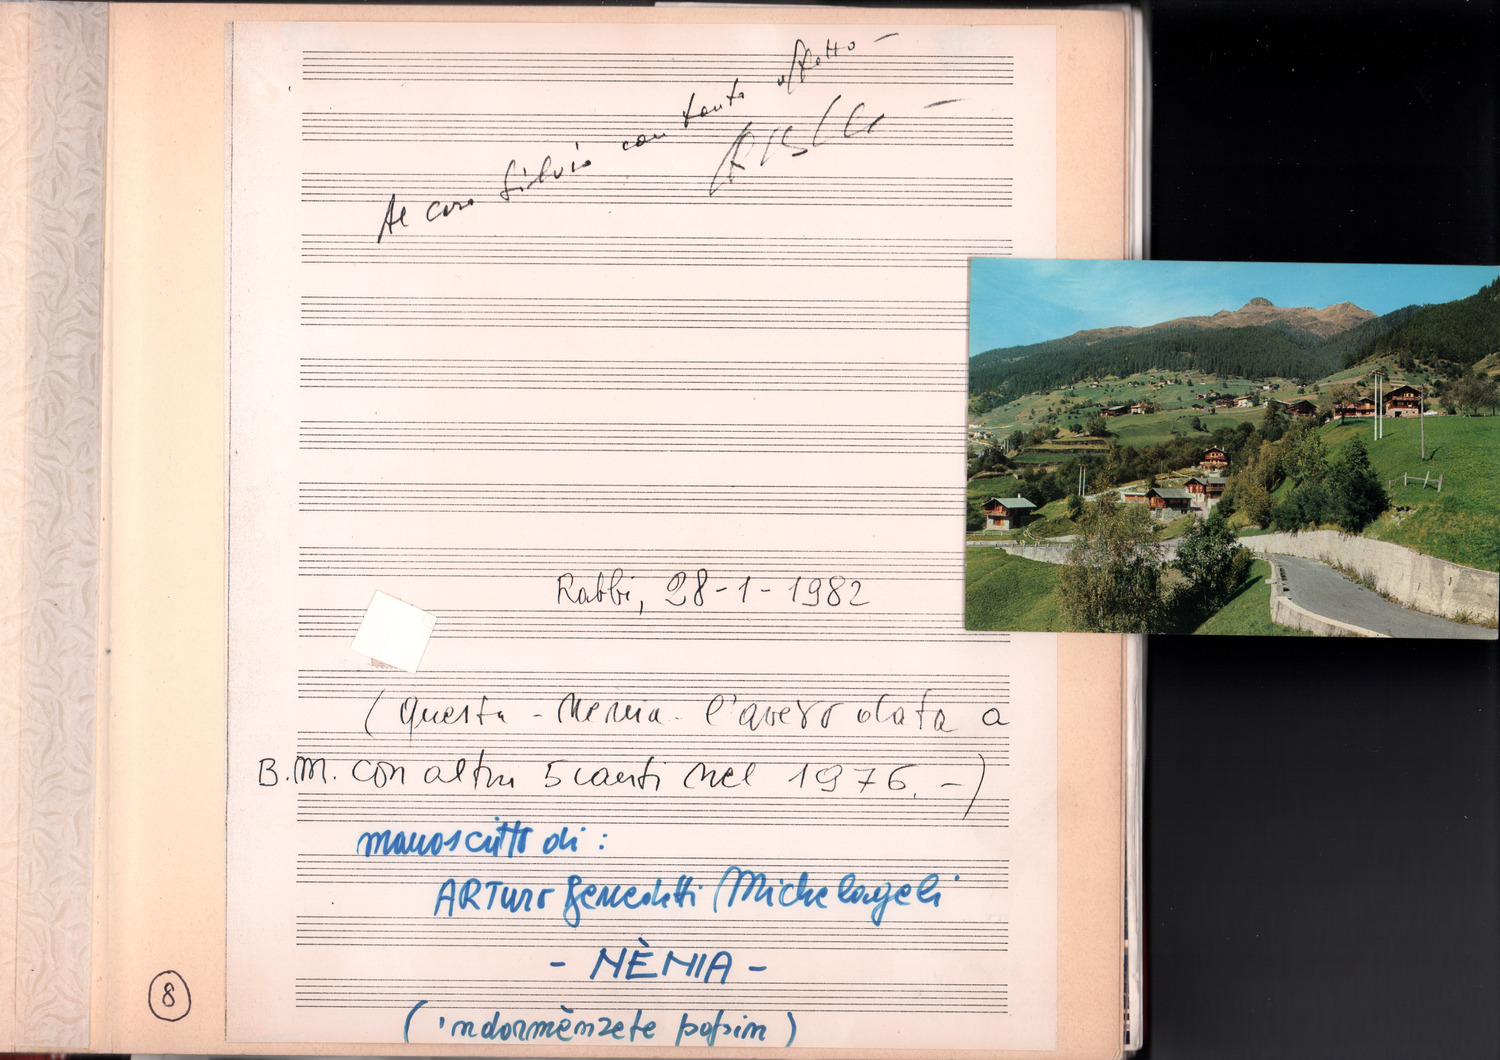 Al caro Silvio con tanto affetto -
Rabbi, 28-1-1982
(questa - Nenia - l'avevo data a
B.M. con altri 5 canti nel 1976. -)
manoscritto di :
ARTuro Benedetti Michelangeli
- NÈNIA -
('ndormènzete popin)
8